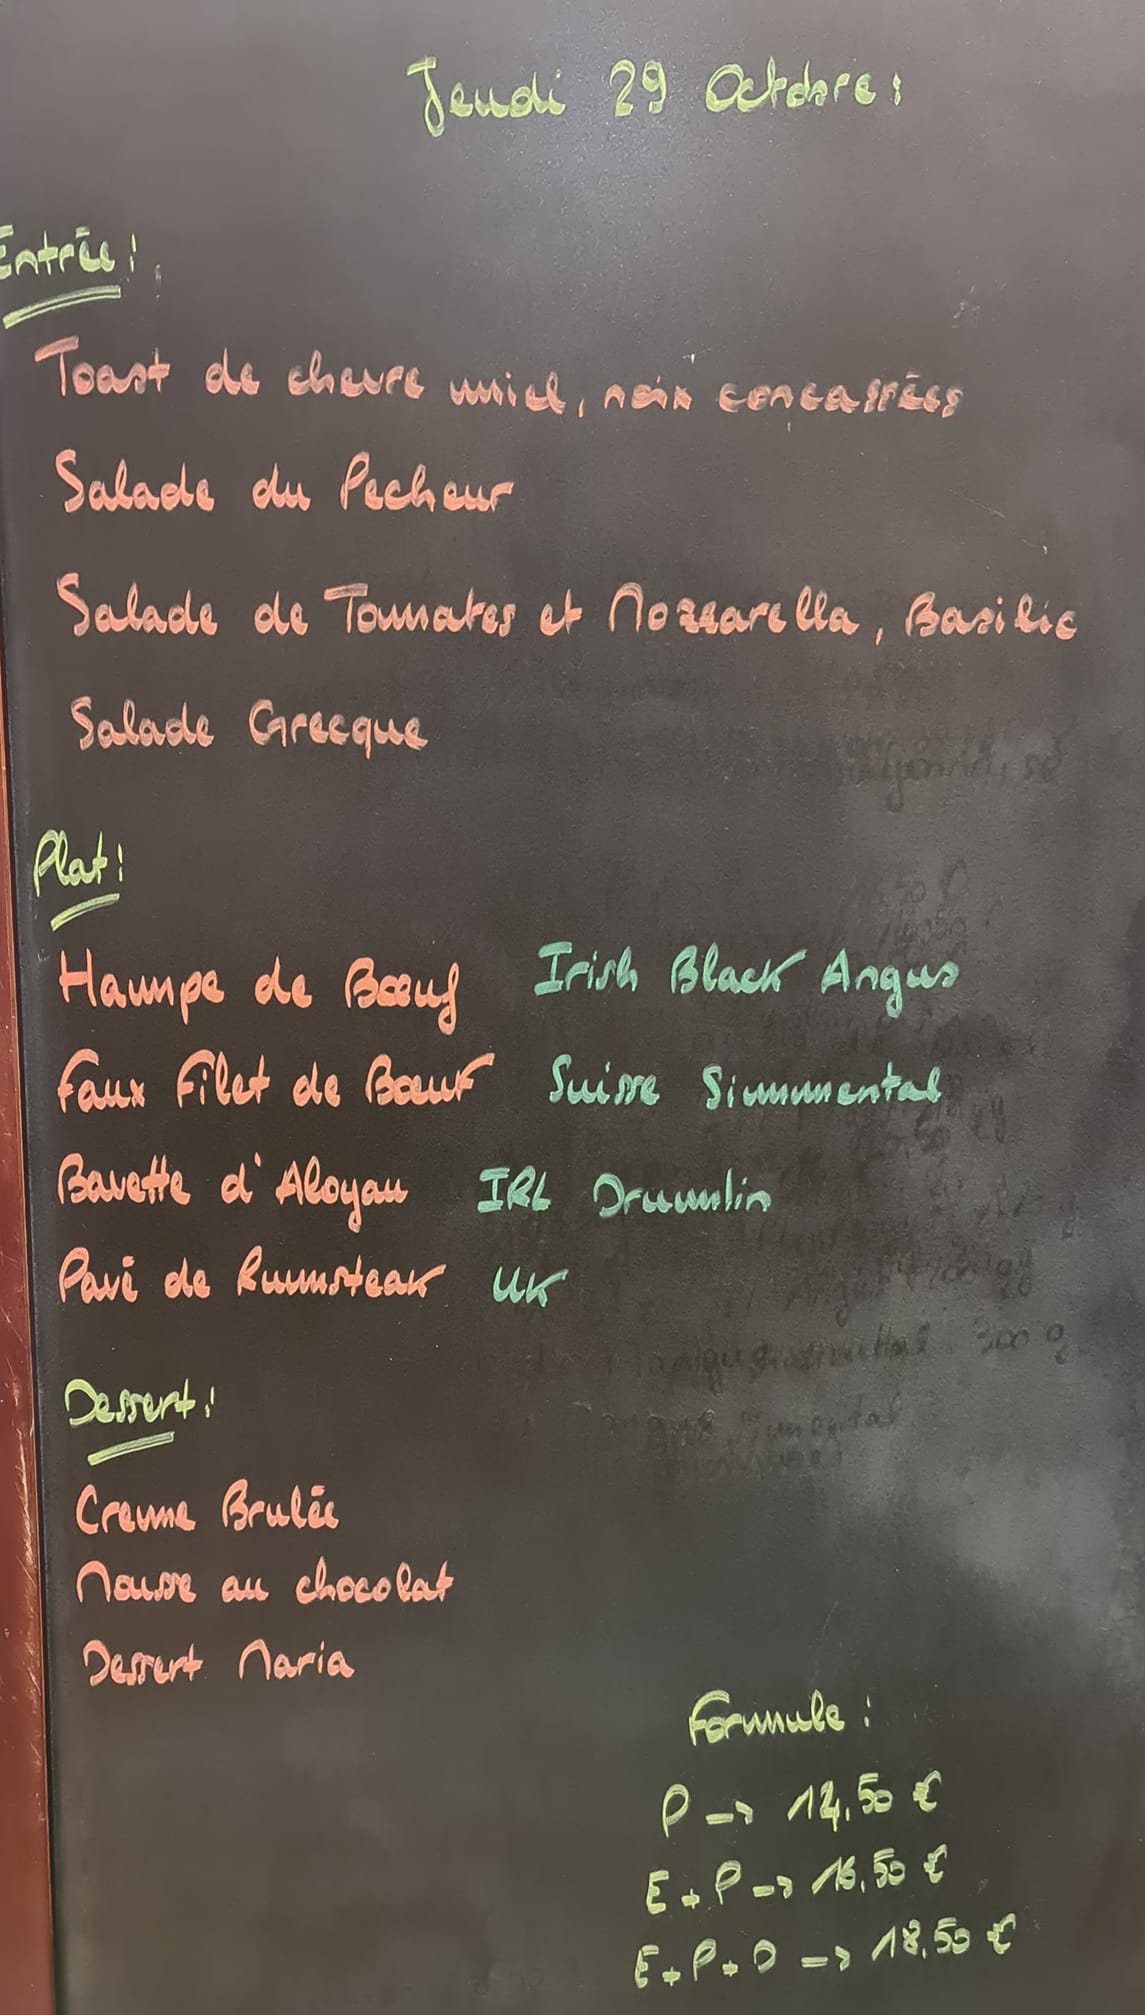 Jeudi 29 Octobre :
Entrée :
Toast de chevre miel, noix concassées
Salade du Pecheur
Salade de Tomates et Mozzarella, Basilic
Salade Grecque
Plat :
Hampe de Bœuf Irish Black Angus
Faux Filet de Bœuf Suisse Simmental
Bavette d'Aloyau IRL Drumlin
Pavé de Rumsteak UK
Dessert :
Creme Brulée
Mousse au chocolat
Dessert Maria
Formule :
P -> 14,50 €
E+P -> 16,50 €
E+P+D -> 18,50 €